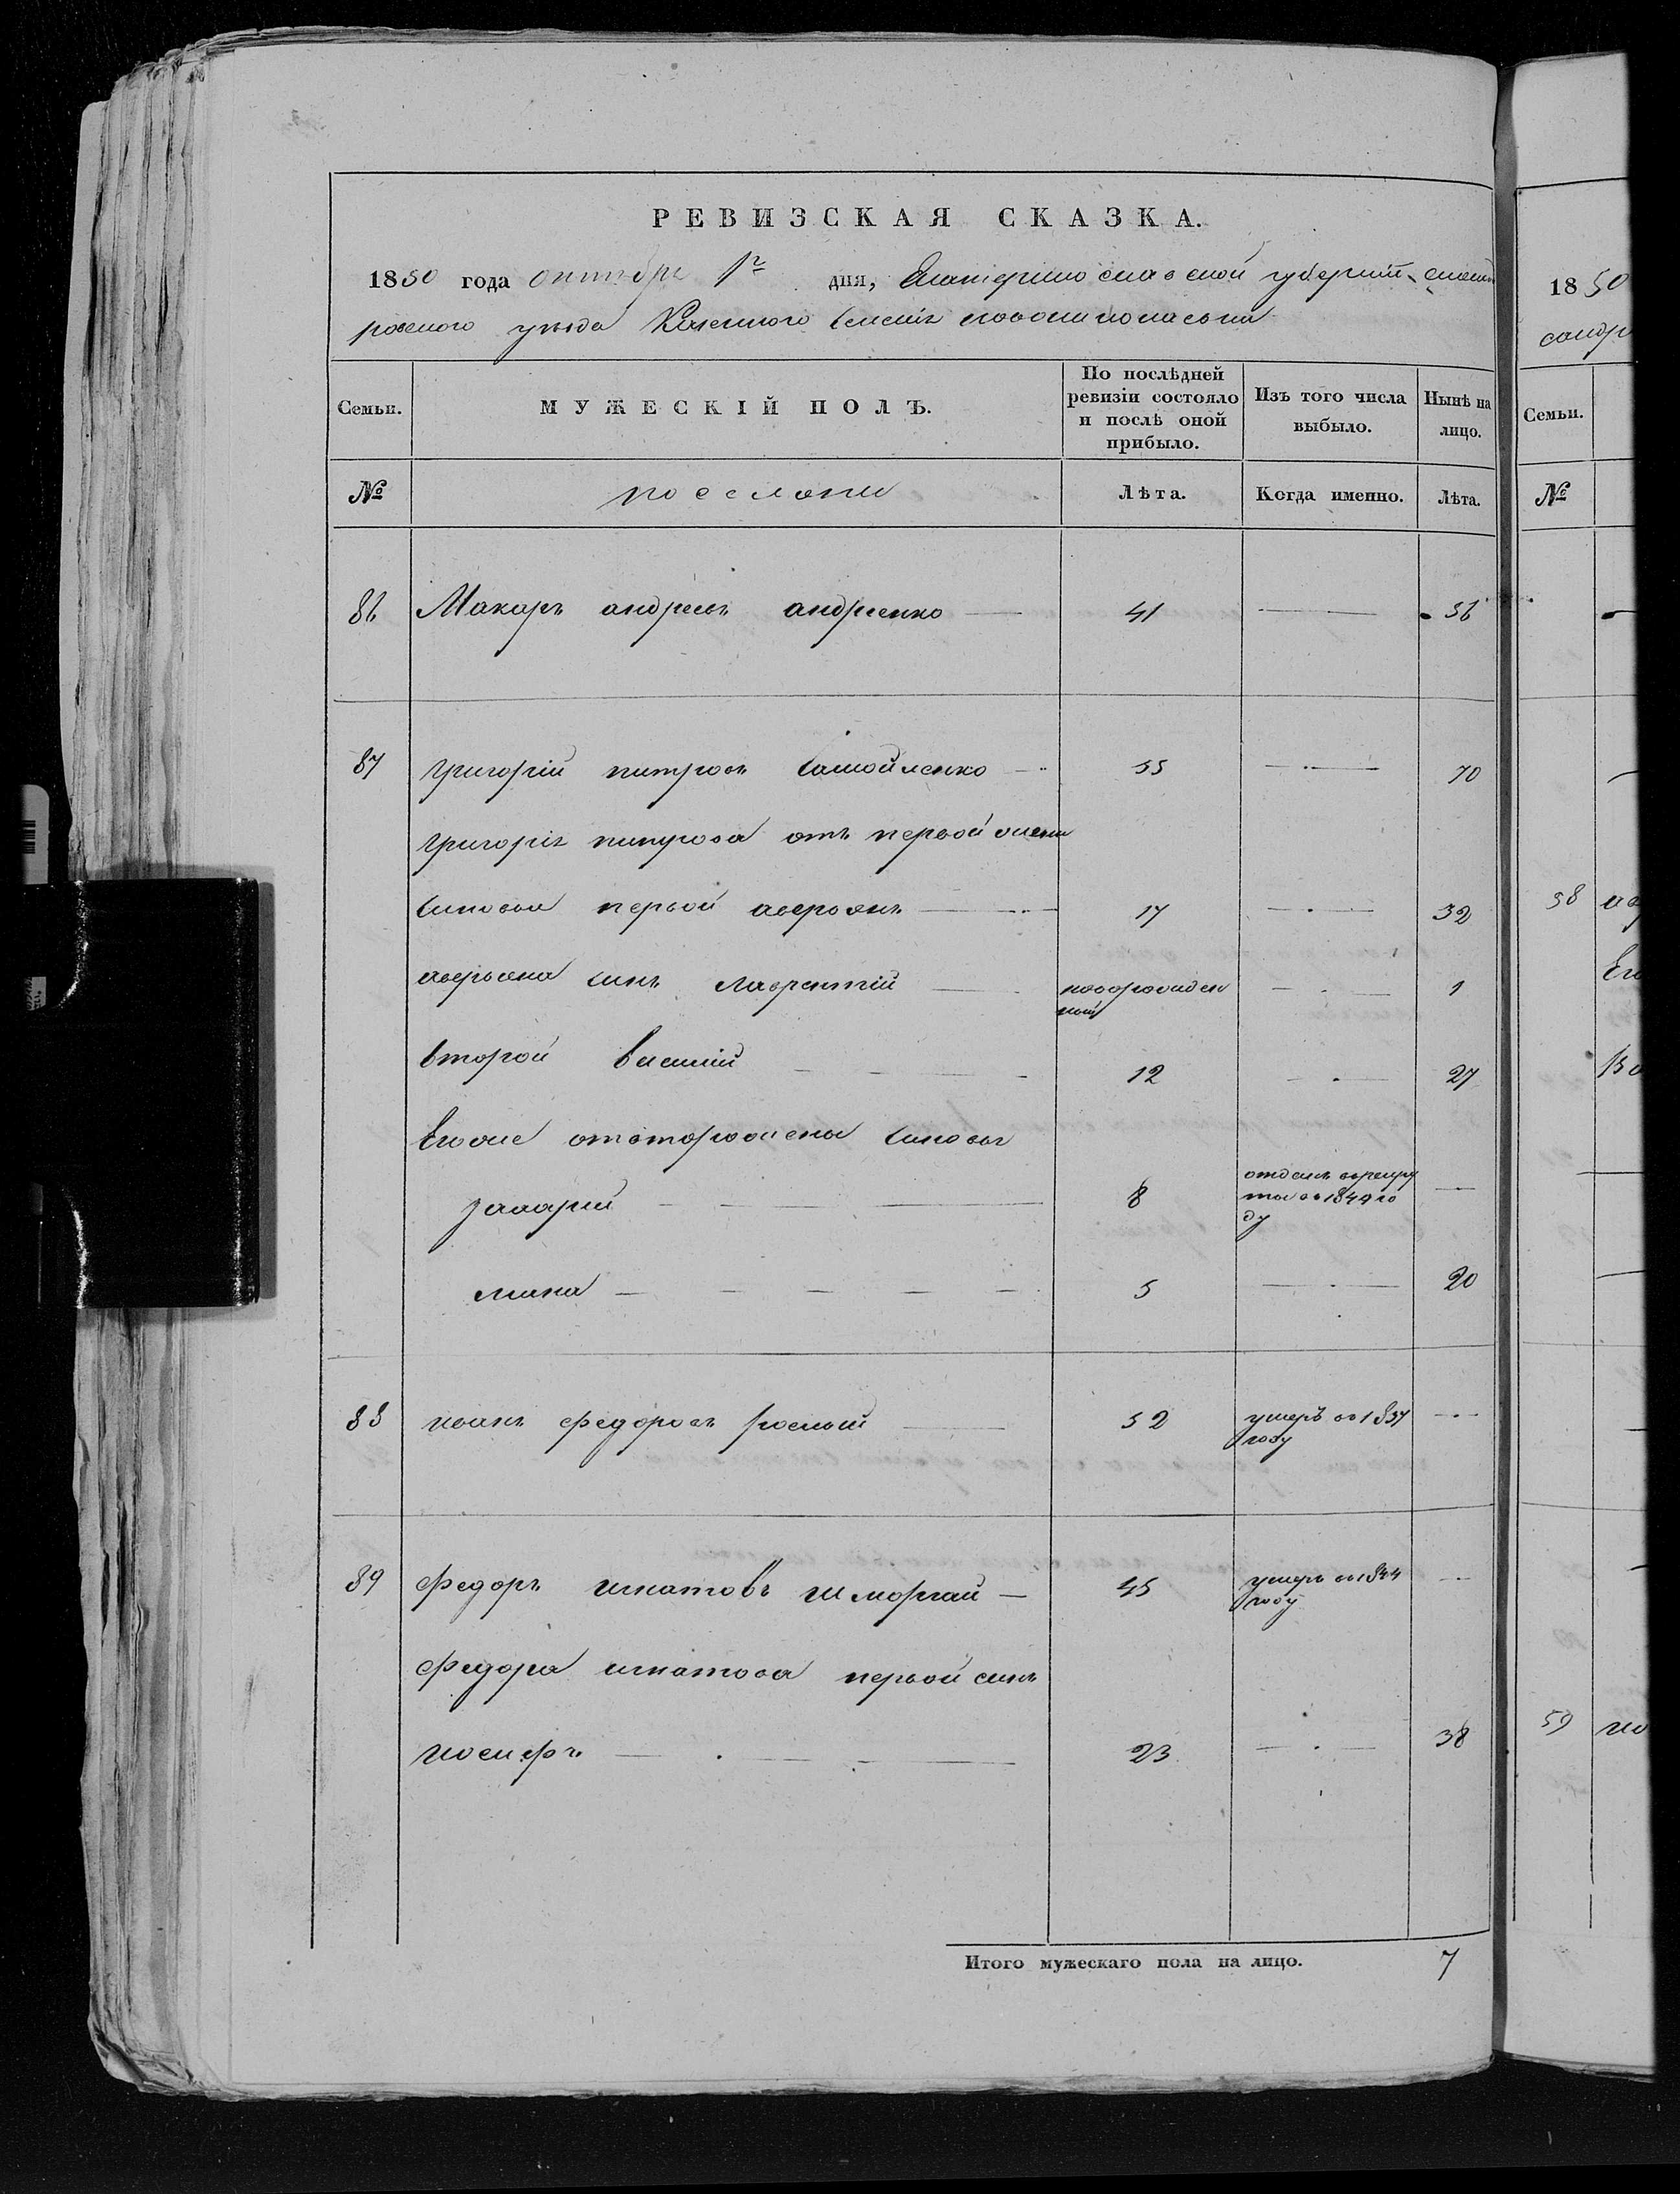 РЕВИЗСКАЯ СКАЗКА.
1850 года октября 1го дня, Екатеринославской губернии алексан
ровского уезда Казенного селения новониколаевки
Семьи. МУЖЕСКІЙ ПОЛЪ. По послѣдней ревизіи состояло и послѣ оной прибыло. Изъ того числа выбыло. Нынѣ на лицо.
№ поселяни Лѣта. Когда именно. Лѣта.
86 Макаръ андреевъ андреенко 41 — 56
87 григорій питровъ Самойленко 55 — 70
григорія питрова отъ первой жени
синовья первой аверьянъ 17 — 32
аверьяна синъ лаврентій новорожден
ный — 1
второй василий 12 — 27
Егоже отвторойжени синовья
захарий 8 отданъ врекру
ты в 1849 го
ду —
мина 5 — 20
88 иванъ федоровъ 52 умеръ в 1837
году —
89 федоръ игнатовъ шморгай 45 умеръ в 1844
году —
федора игнатова первой синъ
иосифъ 23 — 38
Итого мужескаго пола на лицо. 7
1850
сандр
Семьи.
№
58
59